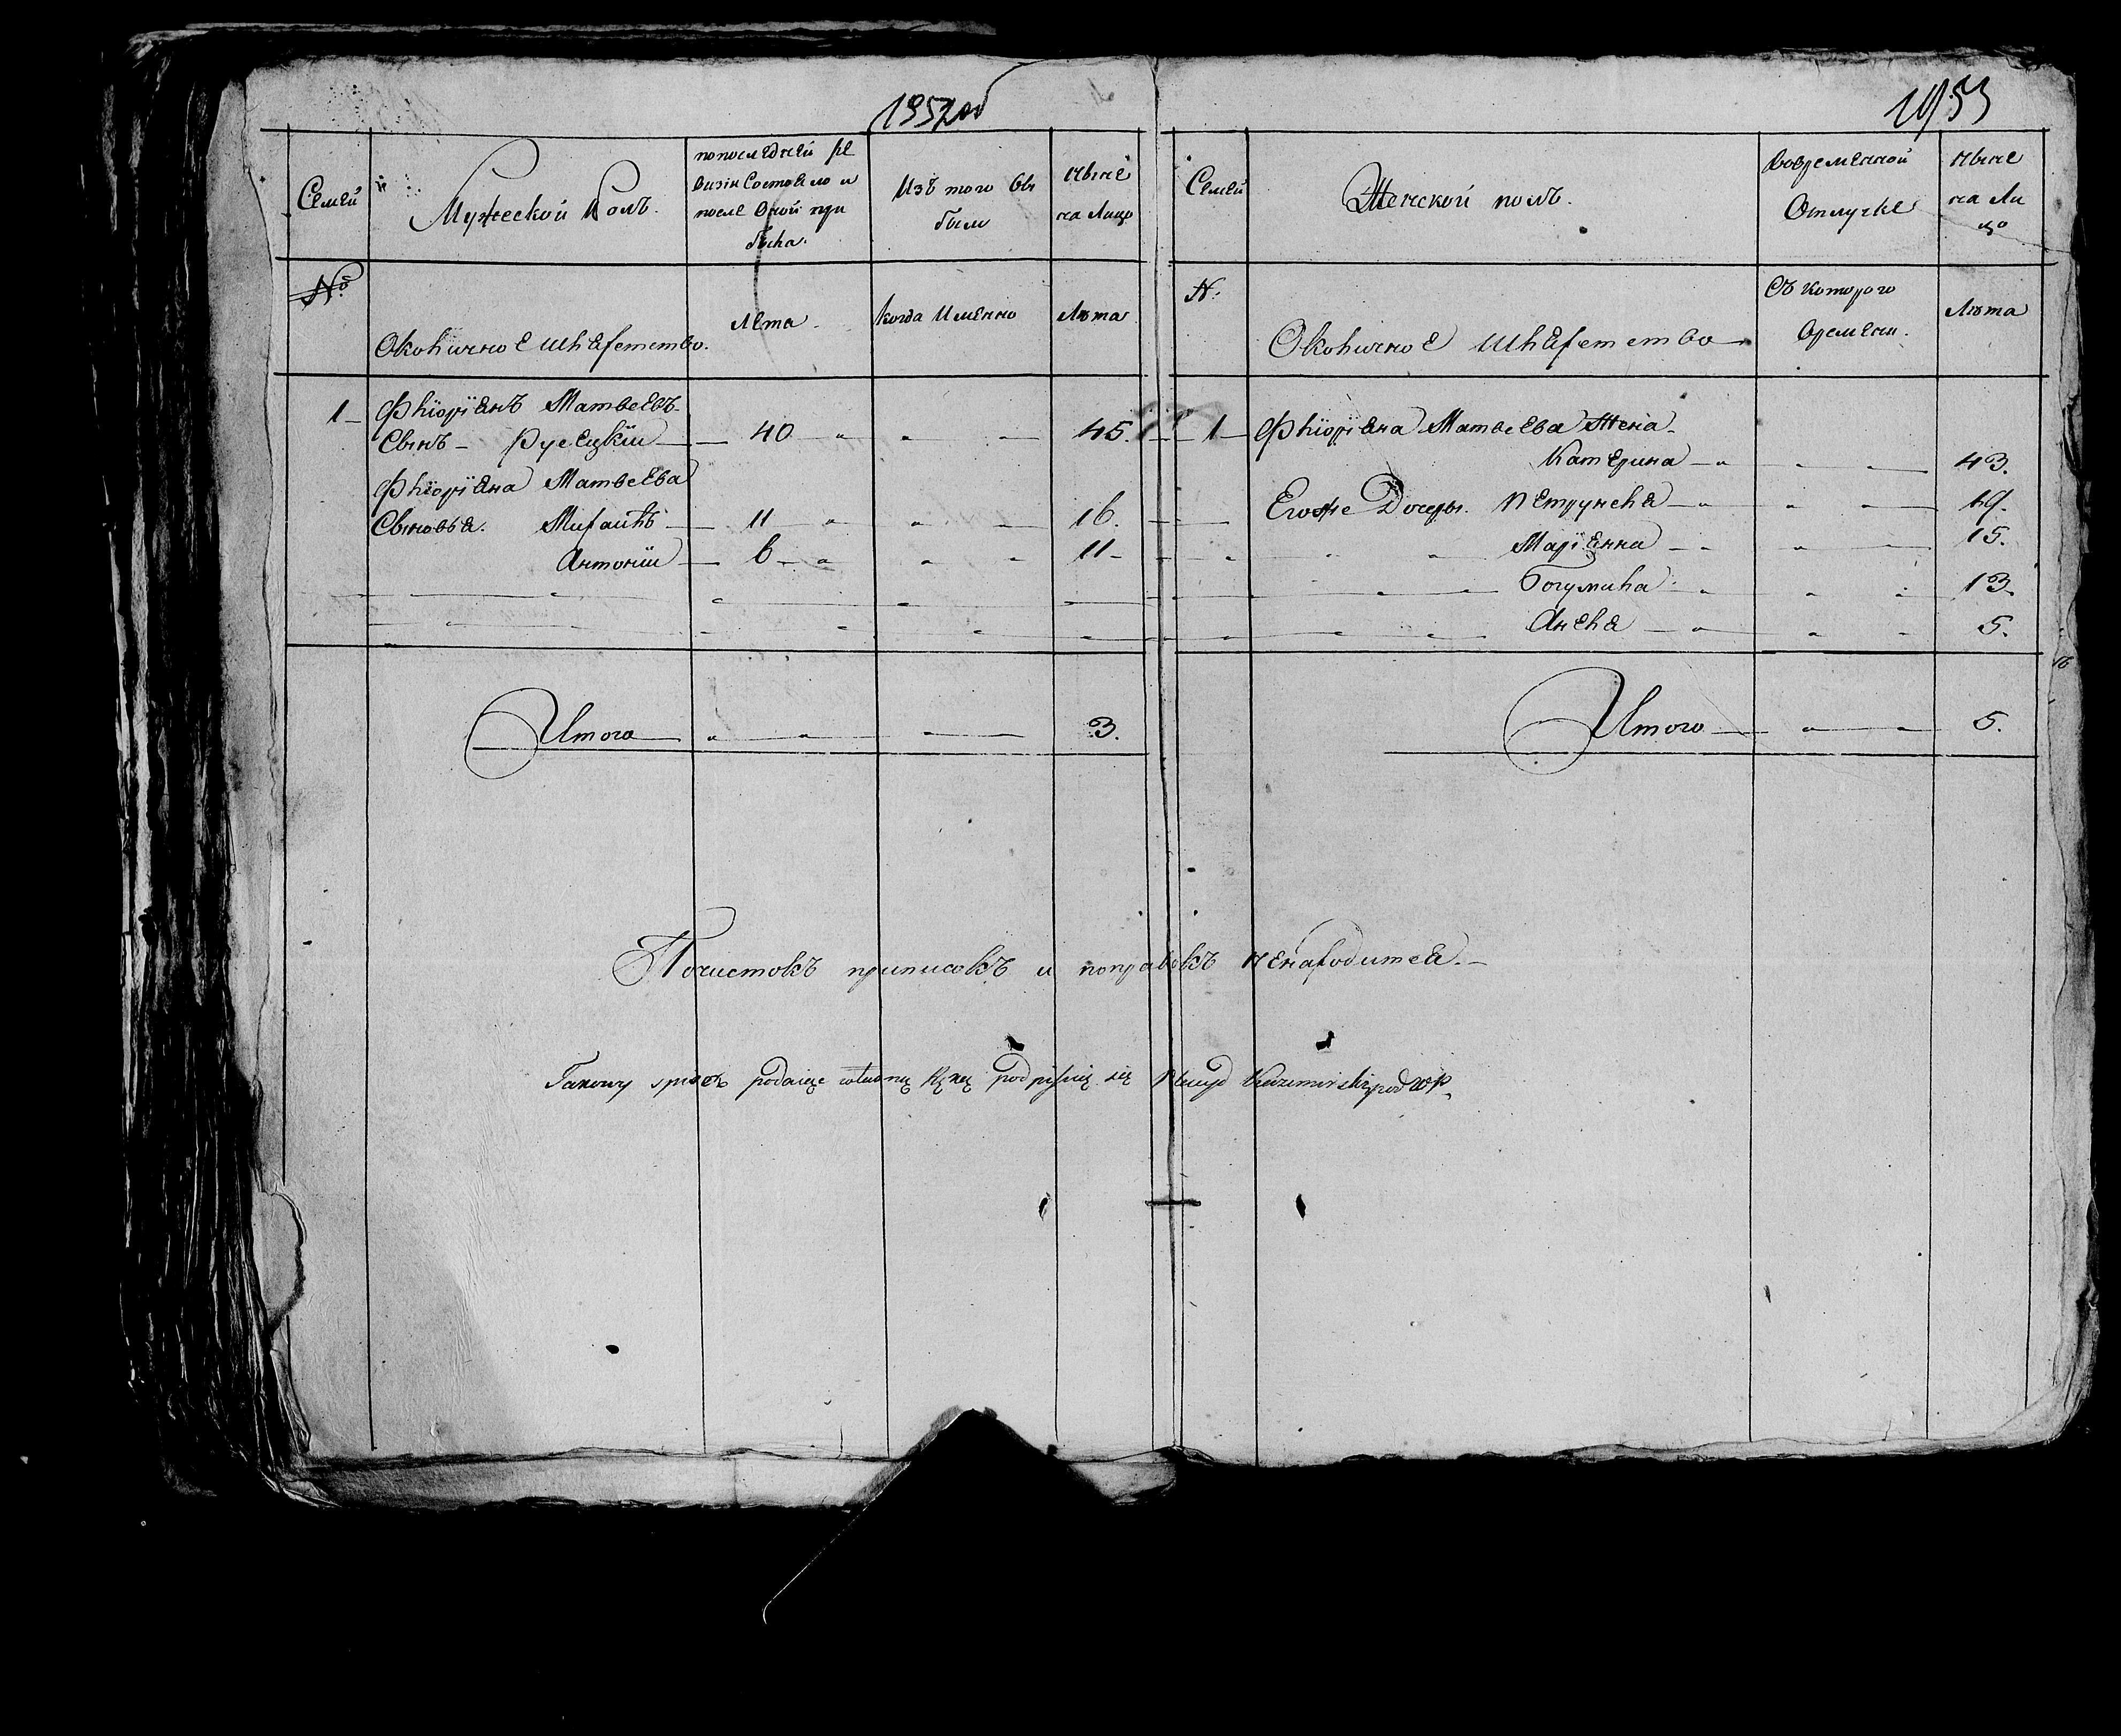 1952об
1953
Семей
Мужеской Полъ.
попоследней ре
визіи Состояло и
после Оной при
было.
Изъ того вы
было
Ныне
на Лицо
№
Околично Е Шляхетство.
Лета
когда Именно
Лѣта
1 Флюріянъ Матвеевъ
Сынъ Русецкій 40 45.
Флюріяна Матвеева
Сыновья. Михаилъ 11 16.
Антоній 6 11
Итого 3.
Семей
Женской полъ.
вовременной
Отлучке
Ныне
на Ли
цо
№
Околичное Шляхетство
Съ которого
времени.
Лѣта
1 Флюріяна Матвеева Жена
Катерина 43.
Егоже Дочеры. Петрунеля 19.
Маріянна 15.
Богумила 13.
Анеля 5.
Итого 5.
Почистокъ приписокъ и поправокъ ненаходится.
podaiąc własną ręką podpisuię się